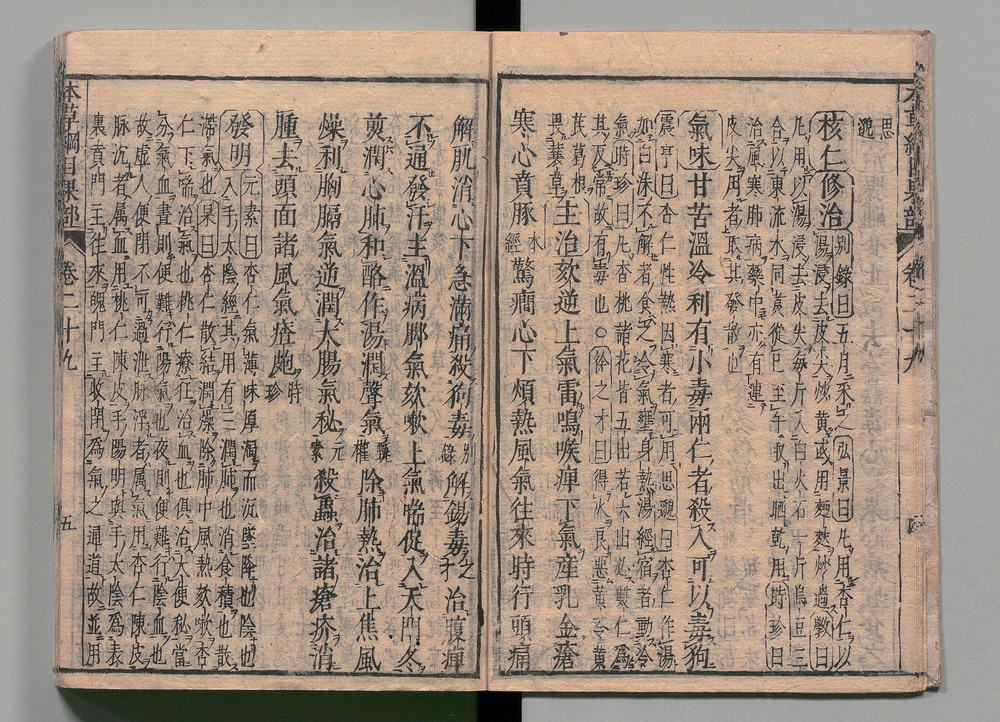 思邈
核仁修治別錄曰五月采之弘景曰凡用杏仁以
湯浸去皮尖炒黃或用麵麩炒過斅曰
凡用以湯浸去皮尖每斤入白火石一斤烏豆三
合以東流水同煮從巳至午取出晒乾用時珍曰
治風寒肺病藥中亦有連
皮尖用者取其發散也
氣味甘苦溫冷利有小毒兩仁者殺人可以毒狗
震亨曰杏仁性熱因寒者可用思邈曰杏仁作湯
如白沫不解者食之令氣壅身熱湯經宿者動冷
氣時珍曰凡杏桃諸花皆五出若六出必雙仁為
其反常故有毒也○徐之才曰得火良惡黃芩黃
芪葛根
畏蘘草
主治欬逆上氣雷鳴喉痺下氣產乳金瘡
寒心賁豚本經驚癇心下煩熱風氣往來時行頭痛
解肌消心下急滿痛殺狗毒別錄解錫毒之才治腹痺
不通發汗主溫病腳氣欬嗽上氣喘促入天門冬
煎潤心肺和酪作湯潤聲氣甄權除肺熱治上焦風
燥利胸膈氣逆潤大腸氣秘元素殺蟲治諸瘡疥消
腫去頭面諸風氣瘡皰時珍
發明元素曰杏仁氣薄味厚濁而沉墜降也陰也
入手太陰經其用有三潤肺也消食積也散
滯氣也杲曰杏仁散結潤燥除肺中風熱欬嗽杏
仁下喘治氣也桃仁療狂治血也俱治大便秘當
分氣血晝則便難行陽氣也夜則便難行陰血也
故虛人便閉不可過泄脉浮者属氣用杏仁陳皮
脉沉者属血用桃仁陳皮手陽明與手太陰為表
裏賁門主往來魄門主收閉為氣之通道故並用
本草綱目果部 卷二十九 五
本草綱目果部 卷二十九